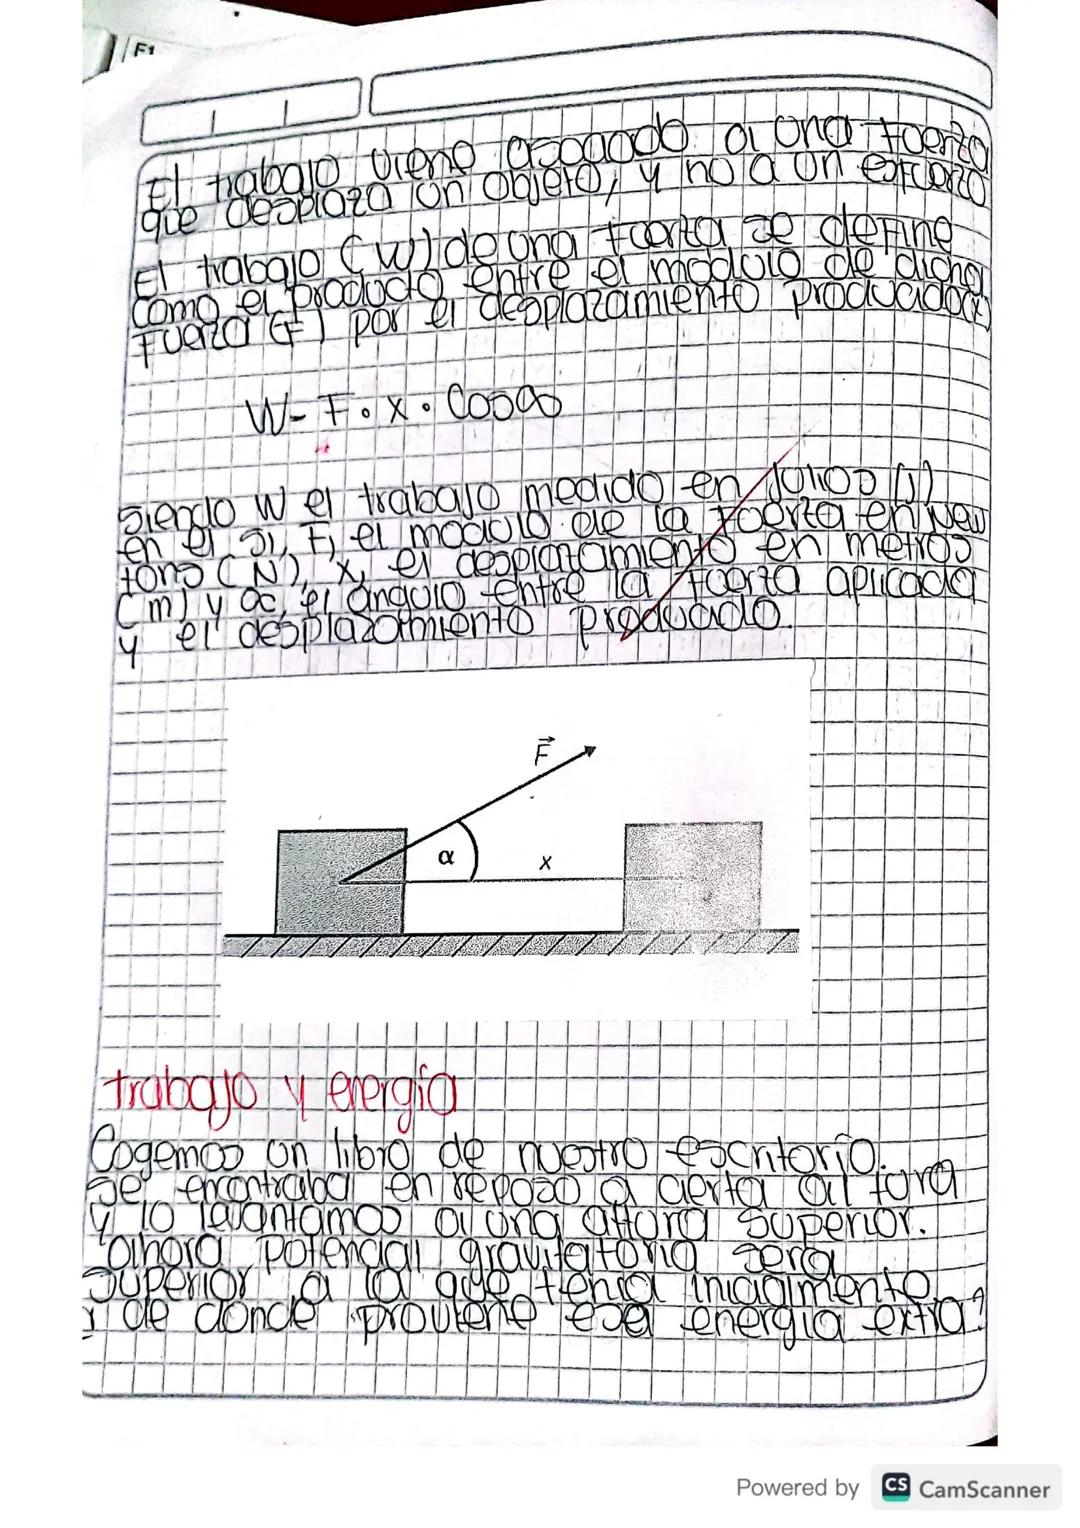 F1
El trabajo viene asociado a una fuerza
que desplaza un objeto, y no a un esfuerzo
El trabajo (W) de una fuerza se define
como el producto entre el modulo de dicha
fuerza (F) por el desplazamiento producido(x)
W- F • x • Cosα
siendo W el trabajo medido en Julios (J)
en el SI, F, el modulo de la fuerza en New
tons (N), x, el desplazamiento en metros
(m) y α, el angulo entre la fuerza aplicada
y el desplazamiento producido.
F
α
x
trabajo y energia
Cogemos un libro de nuestro escritorio.
se encontraba en reposo a cierta altura
y lo levantamos a una altura superior.
ahora potencial gravitatoria sera
superior a la que tenia inicialmente
de donde proviene esa energia extra?
Powered by CS CamScanner